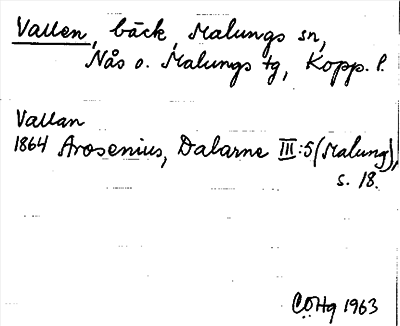 Vallen, bäck, Malungs sn,
Nås o. Malungs tg, Kopp. l.
Vallan
1864 Arosenius, Dalarne III:5 (Malung),
s. 18.
CÖHg 1963